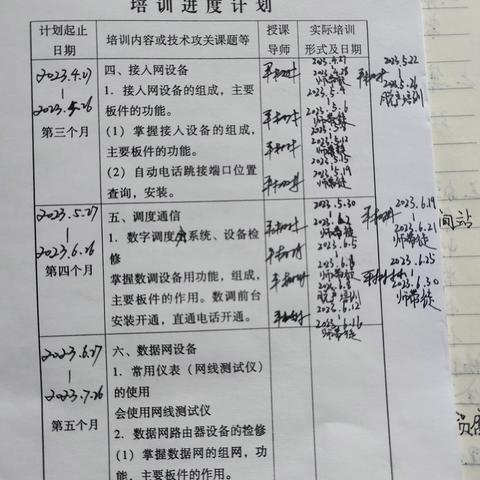 培训进度计划
计划起止
日期
培训内容或技术攻关课题等
授课
导师
实际培训
形式及日期
2023.4.27
2023.5.26
第三个月
四、接入网设备
1．接入网设备的组成，主要
板件的功能。
(1) 掌握接入设备的组成，
主要板件的功能。
(2) 自动电话跳接端口位置
查询，安装。
2023.4.27
2023.4.28
师带徒
2023.5.4
2023.5.6
师带徒
2023.5.12
师带徒
2023.5.15
2023.5.19
师带徒
2023.5.22
2023.5.26
脱产培训
2023.5.27
2023.6.26
第四个月
五、调度通信
1．数字调度系统、设备检
修
掌握数调设备用功能，组成，
主要板件的作用。数调前台
安装开通，直通电话开通。
2023.5.30
师带徒
2023.6.5
脱产培训
2023.6.12
2023.6.16
师带徒
2023.6.19
2023.6.21
师带徒
2023.6.25
2023.6.30
师带徒
间站
2023.6.27
2023.7.26
第五个月
六、数据网设备
1．常用仪表（网线测试仪）
的使用
会使用网线测试仪
2．数据网路由器设备的检修
(1) 掌握数据网的组网，功
能，主要板件的作用。